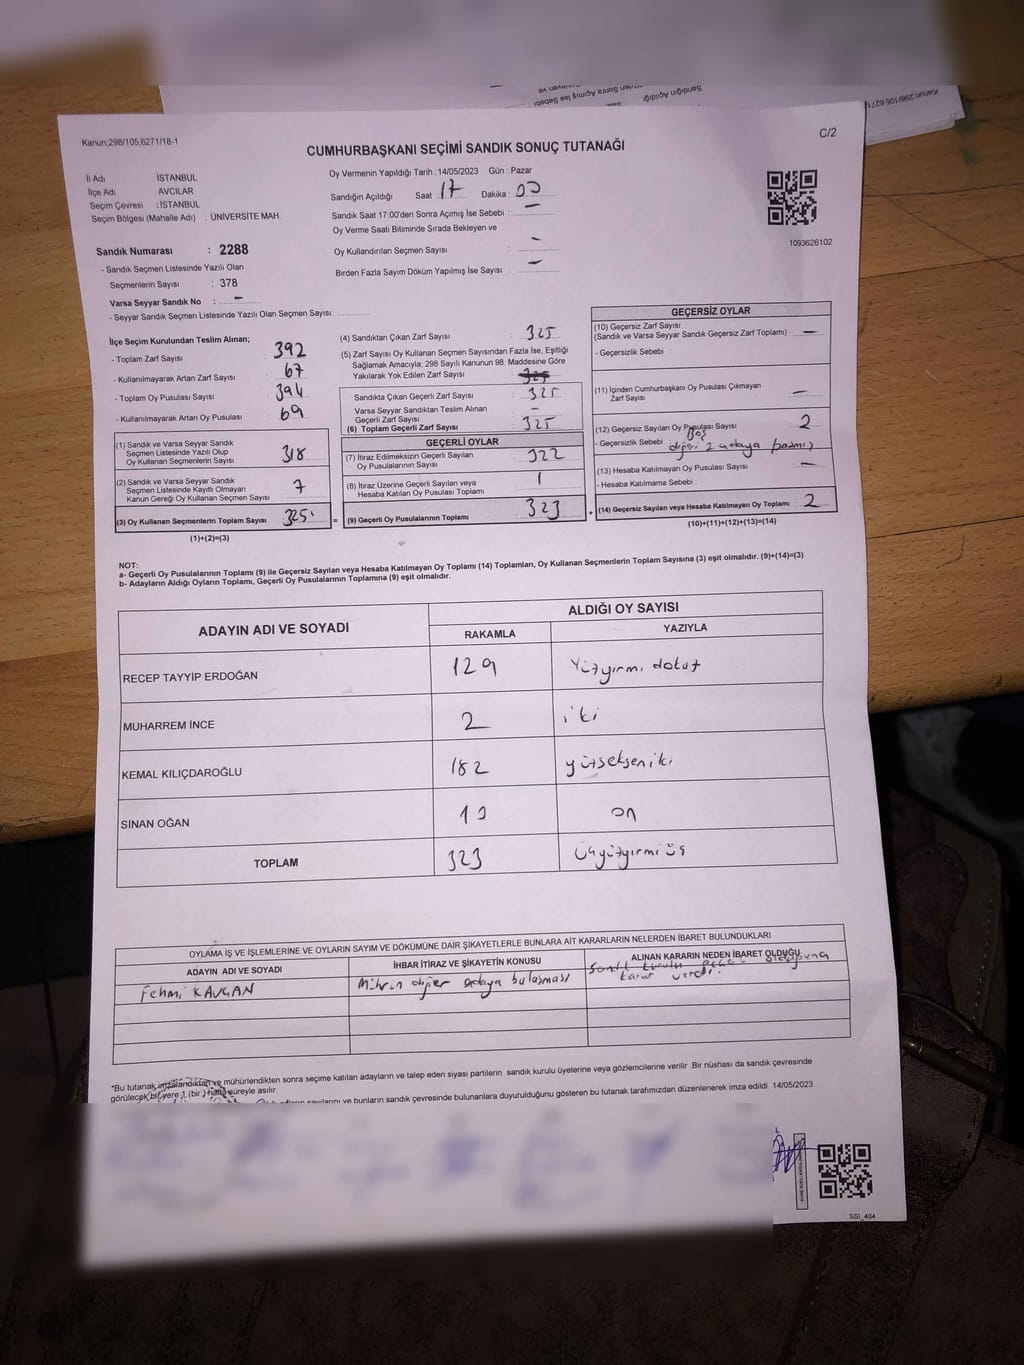 Kanun;298/105;6271/18-1
C/2
CUMHURBAŞKANI SEÇİMİ SANDIK SONUÇ TUTANAĞI
İl Adı : İSTANBUL
İlçe Adı : AVCILAR
Seçim Çevresi : İSTANBUL
Seçim Bölgesi (Mahalle Adı) : ÜNİVERSİTE MAH.
Sandık Numarası : 2288
- Sandık Seçmen Listesinde Yazılı Olan
Seçmenlerin Sayısı : 378
Varsa Seyyar Sandık No : -
- Seyyar Sandık Seçmen Listesinde Yazılı Olan Seçmen Sayısı:
Oy Vermenin Yapıldığı Tarih : 14/05/2023 Gün : Pazar
Sandığın Açıldığı Saat 17 Dakika : 00
Sandık Saat 17:00'den Sonra Açımış İse Sebebi : -
Oy Verme Saati Bitiminde Sırada Bekleyen ve
Oy Kullandırılan Seçmen Sayısı : -
Birden Fazla Sayım Döküm Yapılmış İse Sayısı : -
1093626102
İlçe Seçim Kurulundan Teslim Alınan;
- Toplam Zarf Sayısı : 392
- Kullanılmayarak Artan Zarf Sayısı : 67
- Toplam Oy Pusulası Sayısı : 394
- Kullanılmayarak Artan Oy Pusulası : 69
(1) Sandık ve Varsa Seyyar Sandık
Seçmen Listesinde Yazılı Olup
Oy Kullanan Seçmenlerin Sayısı 318
(2) Sandık ve Varsa Seyyar Sandık
Seçmen Listesinde Kayıtlı Olmayan
Kanun Gereği Oy Kullanan Seçmen Sayısı 7
(3) Oy Kullanan Seçmenlerin Toplam Sayısı 325
(1)+(2)=(3)
(4) Sandıktan Çıkan Zarf Sayısı : 325
(5) Zarf Sayısı Oy Kullanan Seçmen Sayısından Fazla İse, Eşitliği
Sağlamak Amacıyla, 298 Sayılı Kanunun 98. Maddesine Göre
Yakılarak Yok Edilen Zarf Sayısı
Sandıkta Çıkan Geçerli Zarf Sayısı : 325
Varsa Seyyar Sandıktan Teslim Alınan
Geçerli Zarf Sayısı : -
(6) Toplam Geçerli Zarf Sayısı : 325
GEÇERLİ OYLAR
(7) İtiraz Edilmeksizin Geçerli Sayılan
Oy Pusulalarının Sayısı : 322
(8) İtiraz Üzerine Geçerli Sayılan veya
Hesaba Katılan Oy Pusulası Toplamı : 1
(9) Geçerli Oy Pusulalarının Toplamı : 323
GEÇERSİZ OYLAR
(10) Geçersiz Zarf Sayısı
(Sandık ve Varsa Seyyar Sandık Geçersiz Zarf Toplamı) : -
- Geçersizlik Sebebi :
(11) İçinden Cumhurbaşkanı Oy Pusulası Çıkmayan
Zarf Sayısı : -
(12) Geçersiz Sayılan Oy Pusulası Sayısı : 2
- Geçersizlik Sebebi Boş
diğeri 2 adaya basmış
(13) Hesaba Katılmayan Oy Pusulası Sayısı : -
- Hesaba Katılmama Sebebi :
(14) Geçersiz Sayılan veya Hesaba Katılmayan Oy Toplamı : 2
(10)+(11)+(12)+(13)=(14)
NOT:
a- Geçerli Oy Pusulalarının Toplamı (9) ile Geçersiz Sayılan veya Hesaba Katılmayan Oy Toplamı (14) Toplamları, Oy Kullanan Seçmenlerin Toplam Sayısına (3) eşit olmalıdır. (9)+(14)=(3)
b- Adayların Aldığı Oyların Toplamı, Geçerli Oy Pusulalarının Toplamına (9) eşit olmalıdır.
ADAYIN ADI VE SOYADI ALDIĞI OY SAYISI
RAKAMLA YAZIYLA
RECEP TAYYİP ERDOĞAN 129 Yüzyirmi dokuz
MUHARREM İNCE 2 iki
KEMAL KILIÇDAROĞLU 182 yüzseksen iki
SİNAN OĞAN 10 on
TOPLAM 323 Üçyüzyirmiüç
OYLAMA İŞ VE İŞLEMLERİNE VE OYLARIN SAYIM VE DÖKÜMÜNE DAİR ŞİKAYETLERLE BUNLARA AİT KARARLARIN NELERDEN İBARET BULUNDUKLARI
ADAYIN ADI VE SOYADI İHBAR İTİRAZ VE ŞİKAYETİN KONUSU ALINAN KARARIN NEDEN İBARET OLDUĞU
Fehmi KAVGAN Mührün diğer adaya bulaşması Sandık kurulu olduğuna
karar verdi.
*Bu tutanak imzalandıktan ve mühürlendikten sonra seçime katılan adayların ve talep eden siyasi partilerin sandık kurulu üyelerine veya gözlemcilerine verilir. Bir nüshası da sandık çevresinde
görülecek bir yere 1 (bir) hafta süreyle asılır.
sayılarını ve bunların sandık çevresinde bulunanlara duyurulduğunu gösteren bu tutanak tarafımızdan düzenlenerek imza edildi. 14/05/2023
SSI_404